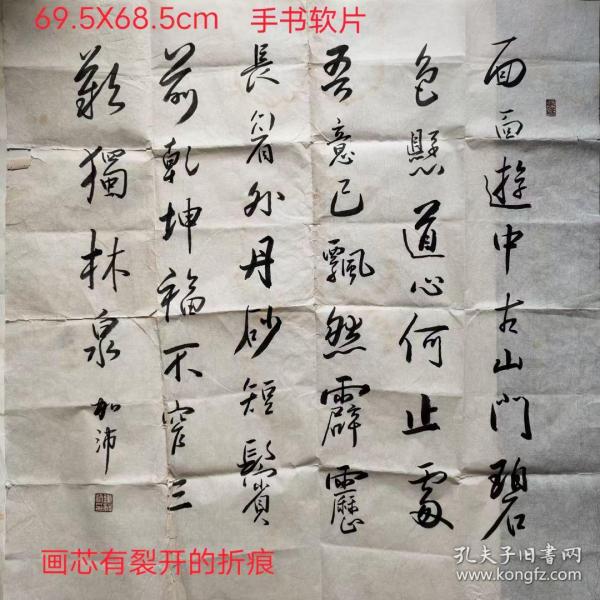 69.5X68.5cm 手书软片
面面遊中古山門碧
色懸道心何止處
吾意已飄然霹靂
長外丹砂短鬢
前乾坤福不窄三
歎獨林泉
加沛
画芯有裂开的折痕
孔夫子旧书网
www.kongfz.com